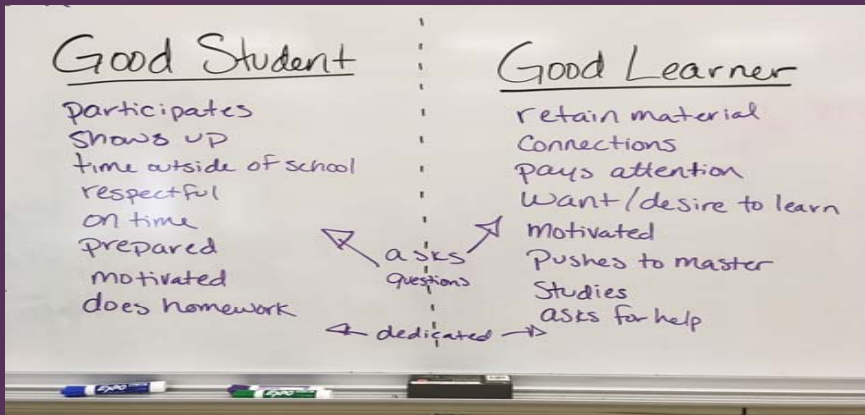 Good Student
participates
shows up
time outside of school
respectful
on time
prepared
motivated
does homework
asks
questions
dedicated
Good Learner
retain material
Connections
pays attention
want/desire to learn
motivated
Pushes to master
Studies
asks for help
EXPO
EXPO